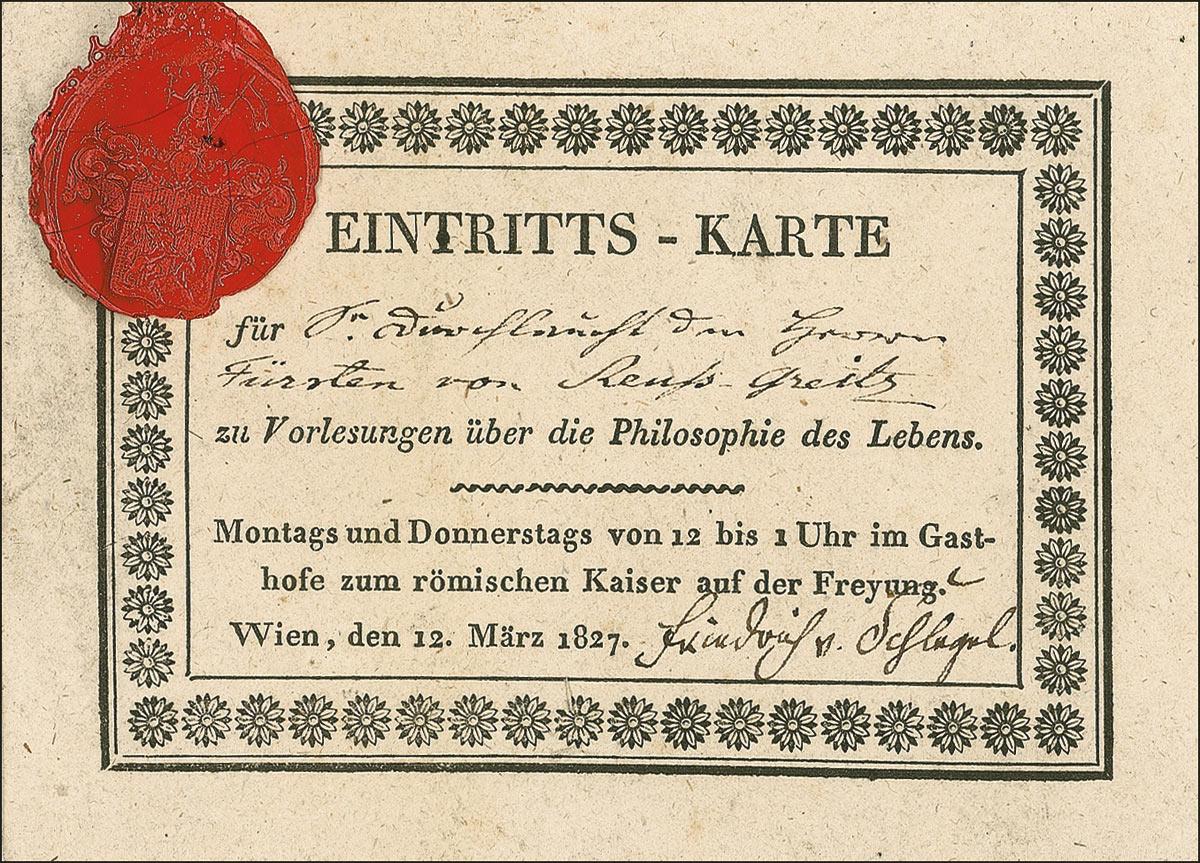 EINTRITTS - KARTE
für Sr. Durchlaucht den Herrn
Fürsten von Reuß-Greitz
zu Vorlesungen über die Philosophie des Lebens.
Montags und Donnerstags von 12 bis 1 Uhr im Gast-
hofe zum römischen Kaiser auf der Freyung.
Wien, den 12. März 1827. Friedrich v. Schlegel.